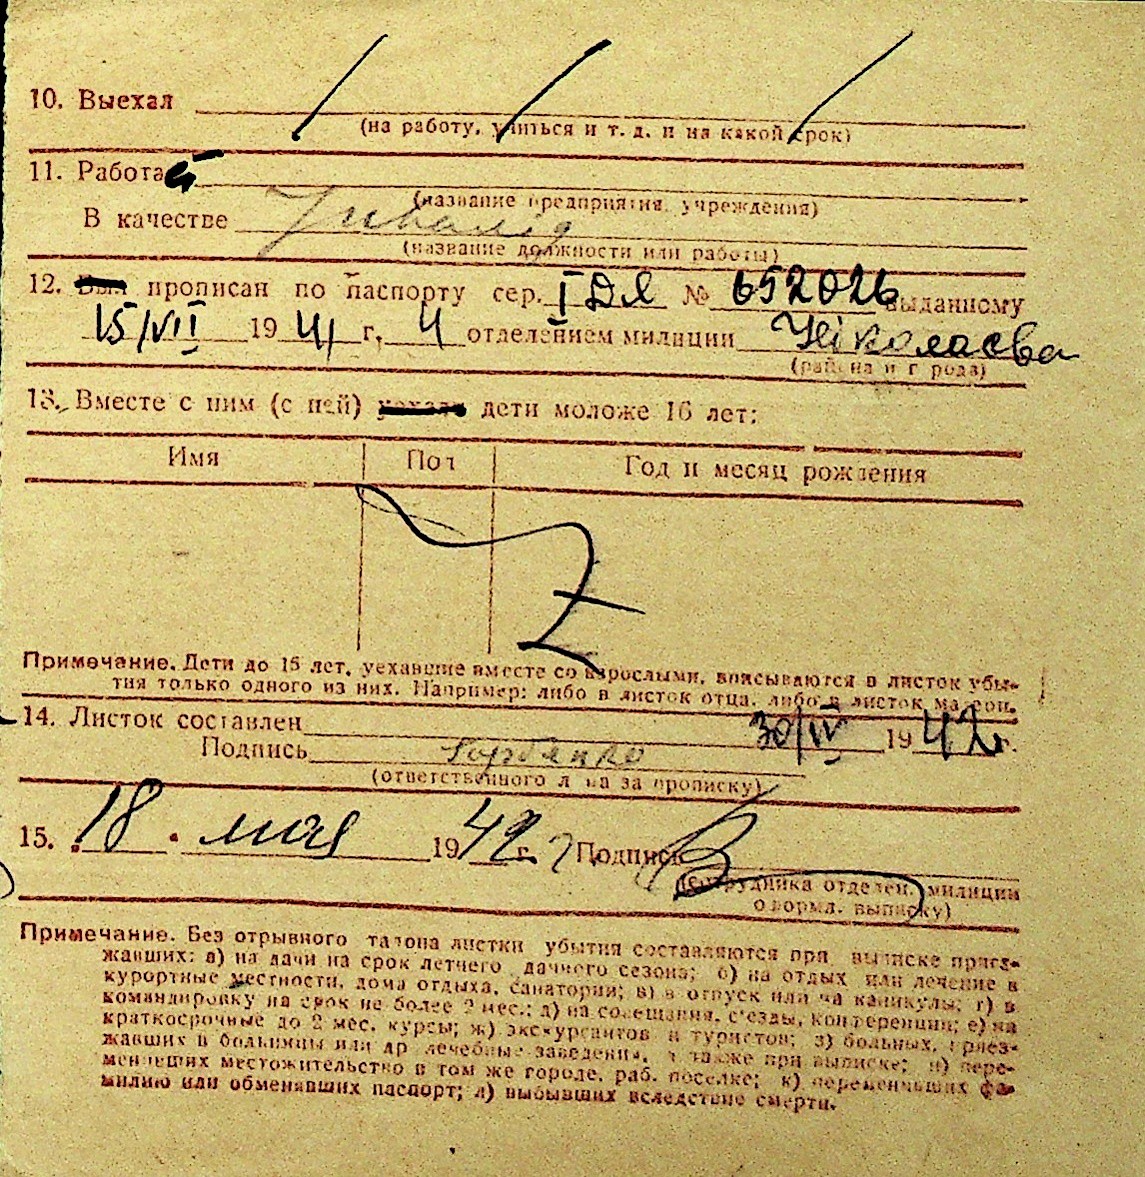 10. Выехал
(на работу, учиться и т. д. и на какой срок)
11. Работает
(название предприятия, учреждения)
В качестве Инвалид
(название должности или работы)
12. Был прописан по паспорту сер. I ДЯ № 652026 выданному
15/VII 1941 г. 4 отделением милиции Николаева
(района и города)
13. Вместе с ним (с ней) уехали дети моложе 16 лет:
Имя Пол Год и месяц рождения
Z
Примечание. Дети до 15 лет, уехавшие вместе со взрослыми, вписываются в листок убы-
тия только одного из них. Например: либо в листок отца, либо в листок матери.
14. Листок составлен 30/IV 1942 г.
Подпись Горбенко
(ответственного лица за прописку)
15. 18 • мая 1942 г. Подпись
(сотрудника отделен. милиции
оформл. выписку)
Примечание. Без отрывного талона листки убытия составляются при выписке приез-
жавших: а) на дачи на срок летнего дачного сезона; б) на отдых или лечение в
курортные местности, дома отдыха, санатории; в) в отпуск или на каникулы; г) в
командировку на срок не более 2 мес.; д) на совещания, съезды, конференции; е) на
краткосрочные до 2 мес. курсы; ж) экскурсантов и туристов; з) больных, приез-
жавших в больницы или др лечебные заведения, а также при выписке; и) пере-
менивших местожительство в том же городе, раб. поселке; к) переменивших фа-
милию или обменявших паспорт; л) выбывших вследствие смерти.